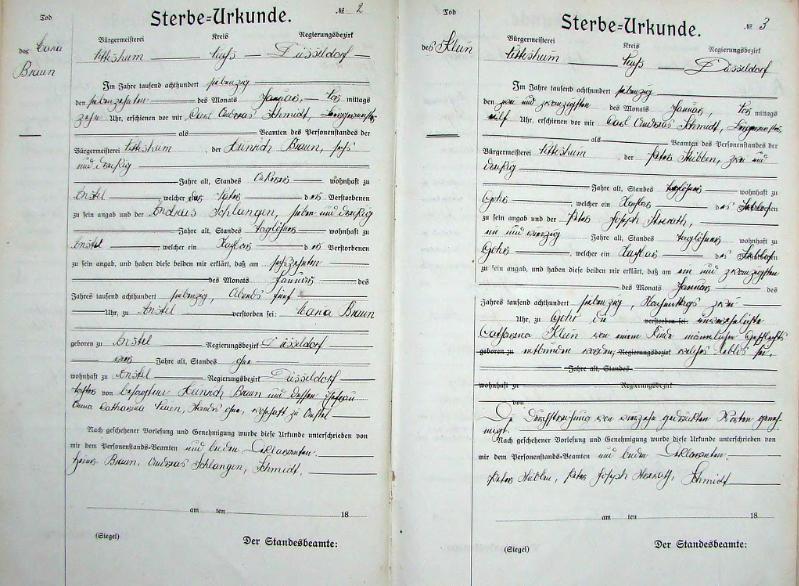 Tod
des
Maria
Braun
Sterbe=Urkunde.
№ 2
Bürgermeisterei Kreis Regierungsbezirk
Nettesheim Neuß Düsseldorf
Im Jahre tausend achthundert siebenzig
den siebenzehnten des Monats Januar, Vor mittags
zehn Uhr, erschienen vor mir Carl Andreas Schmidt, Bürgermeister
als Beamten des Personenstandes der
Bürgermeisterei Nettesheim der Heinrich Braun, sechs
und dreißig
Jahre alt, Standes Ackerer wohnhaft zu
Anstel, welcher ein Vater der Verstorbenen
zu sein angab und der Andreas Schlangen, sieben und dreißig
Jahre alt, Standes Taglöhner wohnhaft zu
Anstel, welcher ein Nachbar der Verstorbenen
zu sein angab, und haben diese beiden mir erklärt, daß am sechszehnten
des Monats Januar des
Jahres tausend achthundert siebenzig, Abends fünf
Uhr, zu Anstel verstorben sei: Maria Braun
geboren zu Anstel Regierungsbezirk Düsseldorf
Jahre alt, Standes ohne
wohnhaft zu Anstel Regierungsbezirk Düsseldorf
Tochter von besagtem Heinrich Braun und dessen Ehefrau
Anna Catharina Standes ohne, wohnhaft zu Anstel
Nach geschehener Vorlesung und Genehmigung wurde diese Urkunde unterschrieben von
mir dem Personenstands=Beamten und beiden Declaranten.
Heinr. Braun. Andreas Schlangen, Schmidt.
am ten 18
(Siegel) Der Standesbeamte:
Tod
des Klein
Sterbe=Urkunde.
№ 3
Bürgermeisterei Kreis Regierungsbezirk
Nettesheim Neuß Düsseldorf
Im Jahre tausend achthundert siebenzig
den zwei und zwanzigsten des Monats Januar, Vor mittags
elf Uhr, erschienen vor mir Carl Andreas Schmidt, Bürgermeister
als Beamten des Personenstandes der
Bürgermeisterei Nettesheim, der Peter Hüblen, zwei und
dreißig
Jahre alt, Standes Taglöhner wohnhaft zu
Gohr, welcher ein Nachbar des Verstorbenen
zu sein angab und der Peter Joseph
ein und vierzig Jahre alt, Standes Taglöhner wohnhaft zu
Gohr, welcher ein Nachbar des Verstorbenen
zu sein angab, und haben diese beiden mir erklärt, daß am ein und zwanzigsten
des Monats Januar des
Jahres tausend achthundert siebenzig, Nachmittags zwei
Uhr, zu Gohr die verstorben sei: unverehelichte
Catharina Klein von einem Kinde männlichen Geschlechts
geboren zu entbunden worden, Regierungsbezirk welches leblos sei.
Jahre alt, Standes
wohnhaft zu Regierungsbezirk
von
Die Durchstreichung von vierzehn gedruckten Worten geneh-
migt.
Nach geschehener Vorlesung und Genehmigung wurde diese Urkunde unterschrieben von
mir dem Personenstands=Beamten und beiden Declaranten.
Peter Hüblen, Peter Joseph Schmidt
am ten 18
(Siegel) Der Standesbeamte: